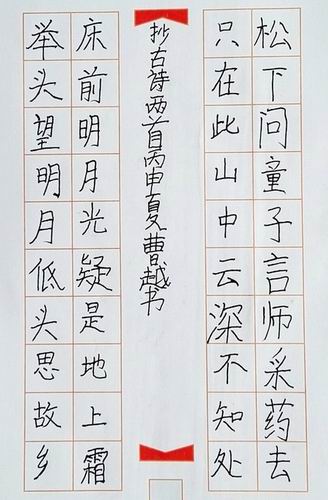 松下问童子言师采药去
只在此山中云深不知处
抄古诗两首丙申夏曹越书
床前明月光疑是地上霜
举头望明月低头思故乡